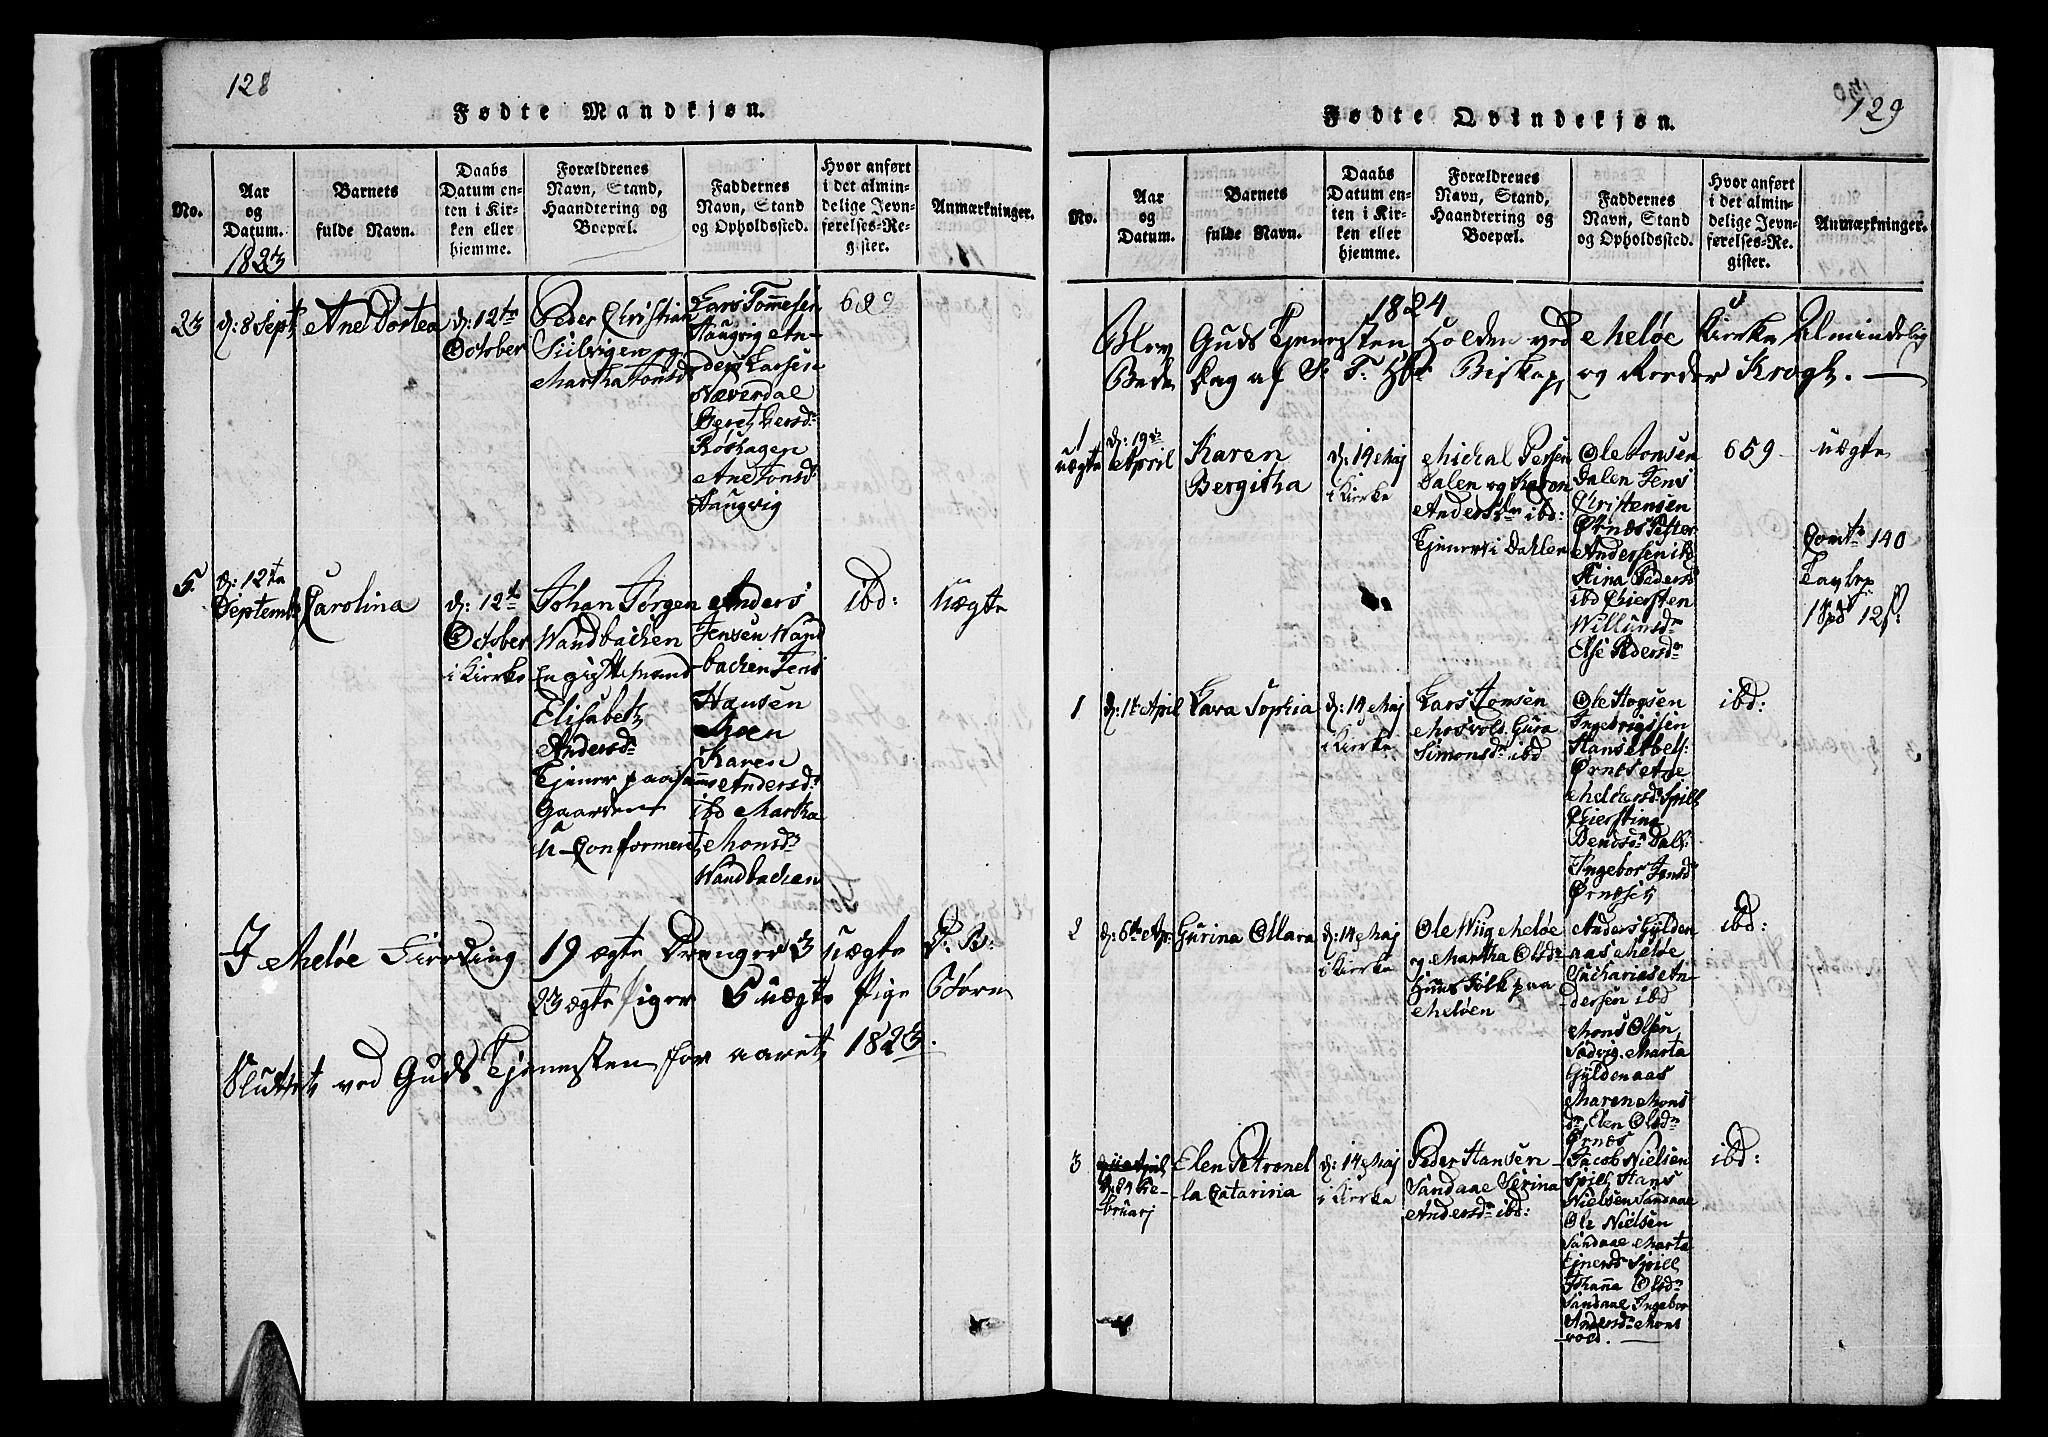 128
Fødte Mandkjøn.
No.
Aar
og
Datum.
1823
Barnets
fulde Navn.
Daabs
Datum en-
ten i Kir-
ken eller
hjemme.
Forældrenes
Navn, Stand,
Haandtering og
Boepæl.
Faddernes
Navn, Stand
og Opholdssted.
Hvor anført
i det almin-
delige Jevn-
førelses-Re-
gister.
Anmærkninger.
23
d: 8 Sept
Ane Dortea
d: 12te
October
Peder Christian
og
Martha Jonsd
Lars Tommesen
Haugvig An-
ders Larsen
Næverdal
Beret Persdr
Røshagen
Ane Jonsdr
Haugvig
5.
d: 12te
Septembr
Carolina
d: 12te
October
i Kirke
Johan Jørgen
Wandbacken
En gift Mand
Elisabet
Andersdr
Tjener paa samme
Gaarden
U-Conformert
Anders
Jensen Wand
backen Jens
Hansen
Moen
Karen
Andersdr
ibd Martha
Monsdr
Wandbacken
ibd:
uægte
I Meløe Fierding 19 ægte Drenger 3 uægte D: B:
23 ægte Piger 5 uægte Pige Børn
Sluttet ved Guds Tjenesten for aaret 1823.
129
Fødte Qvindekjøn.
No.
Aar
og
Datum.
Barnets
fulde Navn.
Daabs
Datum en-
ten i Kir-
ken eller
hjemme.
Forældrenes
Navn, Stand,
Haandtering og
Boepæl.
Faddernes
Navn, Stand
og Opholdssted.
Hvor anført
i det almin-
delige Jevn-
førelses-Re-
gister.
Anmærkninger.
1824
Blev Guds Tjenesten Holden ved Meløe Kirke Almindelig
Bede Dag af S: T: Hr Biskop og Ridder Krogh.
1
uægte
d: 19de
April
Karen
Bergitha
d: 14 Maj
i Kirke
Michal Persen
Dalen og Karen
Andersdr ibd:
Tjener i Dahlen
Ole Jonsen
Dalen Jens
Christensen
Ørnæs Petter
Andersen ibd
Stina Pedersd
ibd Chiersten
Willumsdr
Else Pedersdr
659
uægte
140
1 12 s:
1
d: 1te April
Lava Sophia
d: 14 Maj
i Kirke
Lars Jensen
Mosvold Gura
Simonsdr ibd
Ole Hogsen
Ingebrigtsen
Hans Abels:
Ørnes Ane
Melchersdr Spill
Chierstina
Bendsdr Dall:
Ingebor Jensd
Ørnæsen
ibd:
2
d: 6te Apr:
Gurina Ollara
d: 14 Maj
i Kirke
Ole Wiig Meløe
og Martha Olsdr
Huus Folk paa
Meløen
Anders Gylden
aas Meløe
Sacharias An-
dersen ibd
Mons Olsen
Sødvig Marta
Gyldenaas
Maren Mons
dr, Elen Olsdr
Ørnæs
ibd:
3
d: 24 Fe-
bruarj
Elen Petronel
la Catarina
d: 14 Maj
i Kirke
Peder Hansen
Sandaae Serina
Andersdr ibd:
Jacob Nielsen
Spill, Hans
Nielsen Sandaae
Ole Nielsen
Sandaae Marta
Ejnersdr Spill
Johanna Olsdr
Sandaae Ingebor
Andersdr Mons
vold.
ibd: